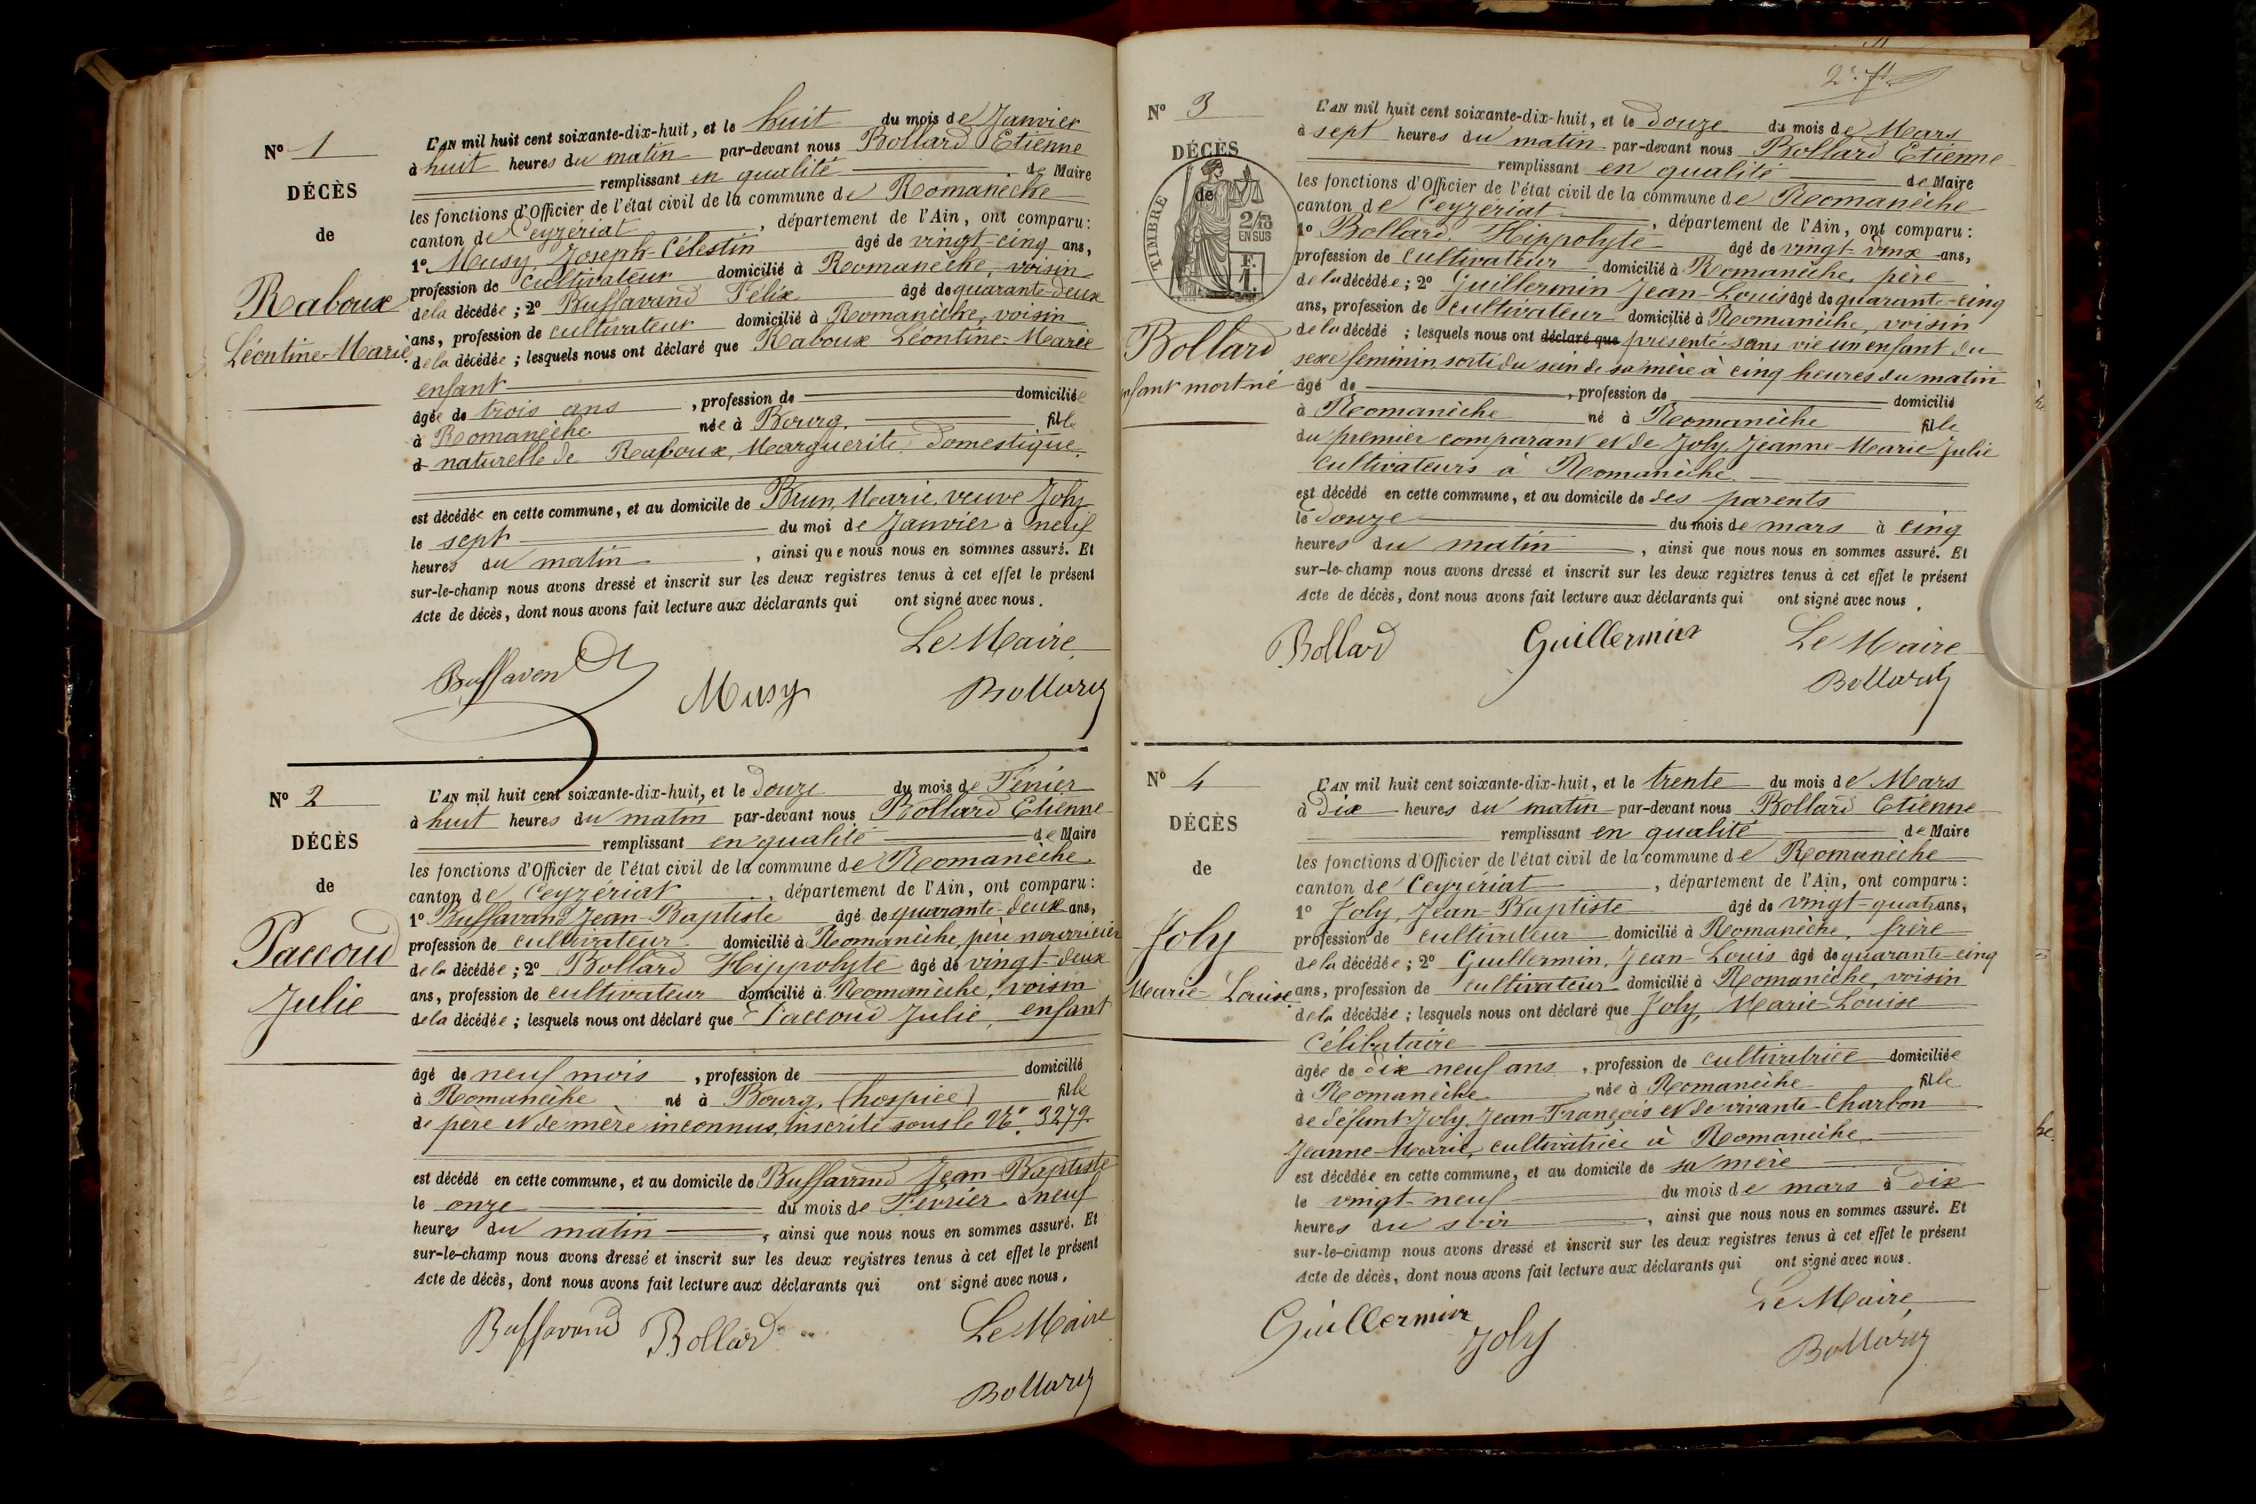 N° 1
DÉCÈS
de
Raboux
Léontine-Marie
L'AN mil huit cent soixante-dix-huit, et le huit du mois de Janvier
à huit heures du matin par-devant nous Bollard Etienne
remplissant en qualité de Maire
les fonctions d'Officier de l'état civil de la commune de Romanèche
canton de Ceyzériat, département de l'Ain, ont comparu :
1° Musy Joseph-Célestin âgé de vingt-cinq ans,
profession de cultivateur domicilié à Romanèche, voisin
de la décédée ; 2° Buffavand Félix âgé de quarante-deux
ans, profession de cultivateur domicilié à Romanèche, voisin
de la décédée ; lesquels nous ont déclaré que Raboux Léontine-Marie
enfant
âgée de trois ans, profession de domiciliée
à Romanèche née à Bourg. fille
d naturelle de Raboux, Marguerite domestique.
est décédée en cette commune, et au domicile de Brun, Marie, veuve Joly
le sept du moi de Janvier à neuf
heures du matin, ainsi que nous nous en sommes assuré. Et
sur-le-champ nous avons dressé et inscrit sur les deux registres tenus à cet effet le présent
Acte de décès, dont nous avons fait lecture aux déclarants qui ont signé avec nous.
Le Maire,
Buffavend Musy Bollard
N° 2
DÉCÈS
de
Paccoud
Julie
L'AN mil huit cent soixante-dix-huit, et le douze du mois de Février
à huit heures du matin par-devant nous Bollard Etienne
remplissant en qualité de Maire
les fonctions d'Officier de l'état civil de la commune de Romanèche
canton de Ceyzériat, département de l'Ain, ont comparu :
1° Buffavand Jean-Baptiste âgé de quarante-deux ans,
profession de cultivateur domicilié à Romanèche, père nourricier
de la décédée ; 2° Bollard Hippolyte âgé de vingt-deux
ans, profession de cultivateur domicilié à Romanèche, voisin
de la décédée ; lesquels nous ont déclaré que Paccoud Julie, enfant
âgé de neuf mois, profession de domicilié
à Romanèche né à Bourg, (hospice) fille
de père et de mère inconnus, inscrite sous le N°. 3279.
est décédé en cette commune, et au domicile de Buffavand Jean-Baptiste
le onze du mois de Février à neuf
heures du matin, ainsi que nous nous en sommes assuré. Et
sur-le-champ nous avons dressé et inscrit sur les deux registres tenus à cet effet le présent
Acte de décès, dont nous avons fait lecture aux déclarants qui ont signé avec nous,
Buffavand Bollard Le Maire
Bollard
2e. ft
N° 3
DÉCÈS
de
TIMBRE
2/10
EN SUS
F.
1.
Bollard
enfant mort né
L'AN mil huit cent soixante-dix-huit, et le douze du mois de Mars
à sept heures du matin par-devant nous Bollard Etienne
remplissant en qualité de Maire
les fonctions d'Officier de l'état civil de la commune de Romanèche
canton de Ceyzériat, département de l'Ain, ont comparu :
1° Bollard, Hippolyte âgé de vingt-deux ans,
profession de cultivateur domicilié à Romanèche, père
de la décédée ; 2° Guillermin Jean-Louis âgé de quarante-cinq
ans, profession de cultivateur domicilié à Romanèche, voisin
de la décédé ; lesquels nous ont déclaré que présenté sans vie un enfant du
sexe feminin, sorti du sein de sa mère à cinq heures du matin
âgé de, profession de domicilié
à Romanèche né à Romanèche fille
du premier comparant et de Joly, Jeanne-Marie-Julie
cultivateurs à Romanèche
est décédé en cette commune, et au domicile de ses parents
le douze du mois de mars à cinq
heures du matin, ainsi que nous nous en sommes assuré. Et
sur-le-champ nous avons dressé et inscrit sur les deux registres tenus à cet effet le présent
Acte de décès, dont nous avons fait lecture aux déclarants qui ont signé avec nous.
Bollard Guillermin Le Maire
Bollard
N° 4
DÉCÈS
de
Joly
Marie-Louise
L'AN mil huit cent soixante-dix-huit, et le trente du mois de Mars
à dix heures du matin par-devant nous Bollard Etienne
remplissant en qualité de Maire
les fonctions d'Officier de l'état civil de la commune de Romanèche
canton de Ceyzériat, département de l'Ain, ont comparu :
1° Joly, Jean-Baptiste âgé de vingt-quatre ans,
profession de cultivateur domicilié à Romanèche, frère
de la décédée ; 2° Guillermin, Jean-Louis âgé de quarante-cinq
ans, profession de cultivateur domicilié à Romanèche, voisin
de la décédée ; lesquels nous ont déclaré que Joly, Marie-Louise
Célibataire
âgée de dix neuf ans, profession de cultivatrice domiciliée
à Romanèche née à Romanèche fille
de défunt Joly, Jean-François et de vivante Charbon
Jeanne-Marie, cultivatrice à Romanèche
est décédée en cette commune, et au domicile de sa mère
le vingt-neuf du mois de mars à dix
heures du soir, ainsi que nous nous en sommes assuré. Et
sur-le-champ nous avons dressé et inscrit sur les deux registres tenus à cet effet le présent
Acte de décès, dont nous avons fait lecture aux déclarants qui ont signé avec nous.
Le Maire,
Guillermin Joly Bollard